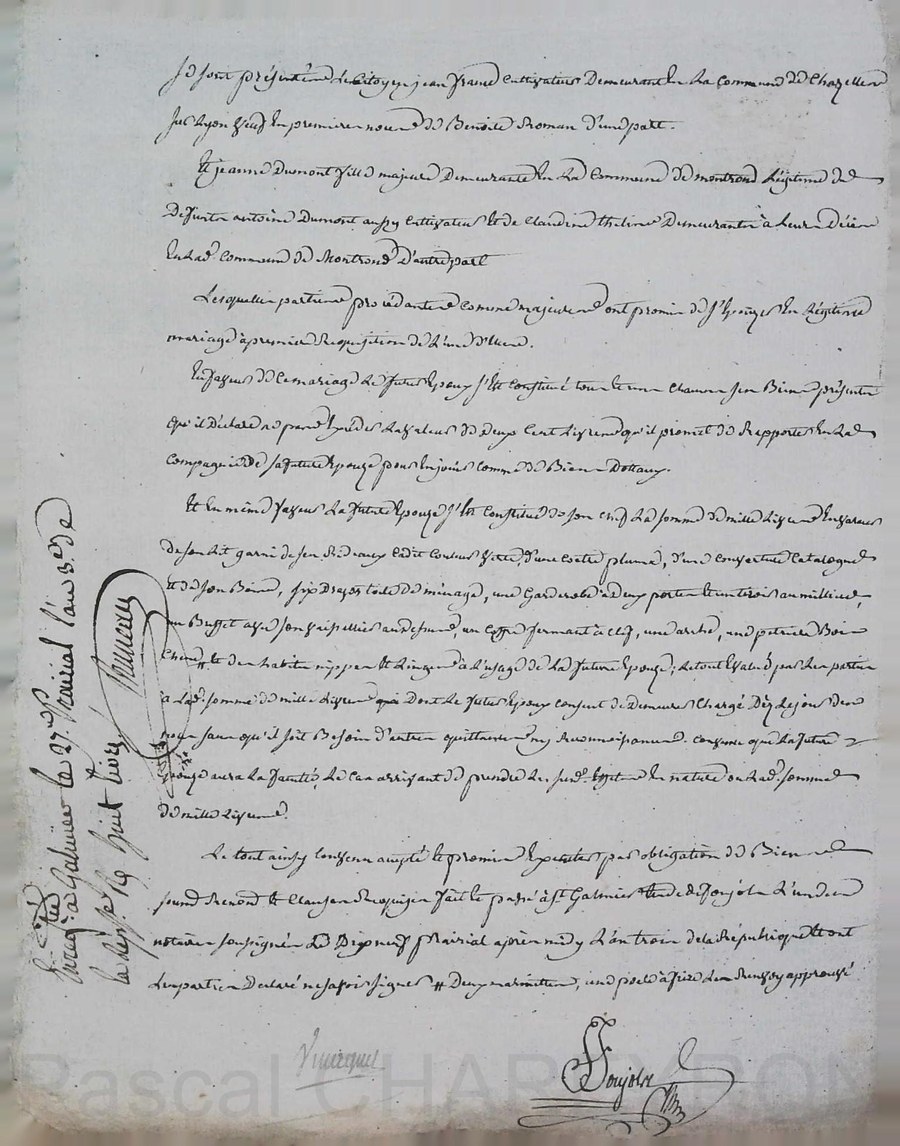 Se sont présentés Le Citoyen jean France Cultivateur Demeurant En La Commune de Chazelles
sur Lyon Veuf En premieres noces de Benoite Roman d'une part.
Et jeanne Dumont fille majeure Demeurante En La Commune de Montrond Légitime de
Defunts antoine Dumont aussy Cultivateur Et de Claudine Demeurants à Leurs Décès
En Lad. Commune de Montrond D'autre part
Lesquelles parties procédantes comme majeures ont promis de s'Epouzer En Légitime
mariage à première Requisition de L'une d'elles.
En faveur de Ce mariage Le futur Epoux s'Est Constitué tous Et uns Chacuns ses Biens présents
qu'il Déclare ne pas Excéder La Valeur de deux Cent Livres qu'il promet de Rapporter En La
Compagnie de sa future Epouze pour En jouir Comme de Biens Dottaux.
Et En même faveur La future Epouze s'Est Constituée de son Chef La somme de mille Livres En Valeur
de son Lit garni de ses Rideaux Cadit Couleur Verte, d'une Coëte plume, d'une Couverture Catalogne
Et de son Bois, six Draps toile de ménage, une Garderobe à deux portes Et un tiroir au millieu,
un Buffet avec son Vaisselier au dessus, un Coffre fermant à Clef, une arche, une petriere Bois
Chene, # Et des habits nippes Et Linges à L'usage de La future Epouze, Le tout Evalué par Les parties
à Lad. somme de mille Livres Dont Le futur Epoux Consent de Demeurer Chargé Dès Le jour des
noces sans qu'il soit Besoin d'autres quittances ny Reconnoissances. Convenu que La future
Epouze aura La faculté Le Cas arrivant de prendre Les susd. Effets En nature ou Lad. somme
de mille Livres.
Le tout ainsy Convenu accepté Et promis Executer par obligation de Biens
soumis Renond. Et Clauses Fait Et passé à St Galmier Etude de Ponjols L'un des
notaires soussignés Le Dix neuf Prairial après midy L'an trois de la République Et ont
Les parties Declaré ne savoir signer # Deux marmittes, une poele à frire Le Renvoy approuvé
Ponjols
Enreg. à Galmier Le 27. Prairial L'an 3. de
la Rép. Reçu huit livres